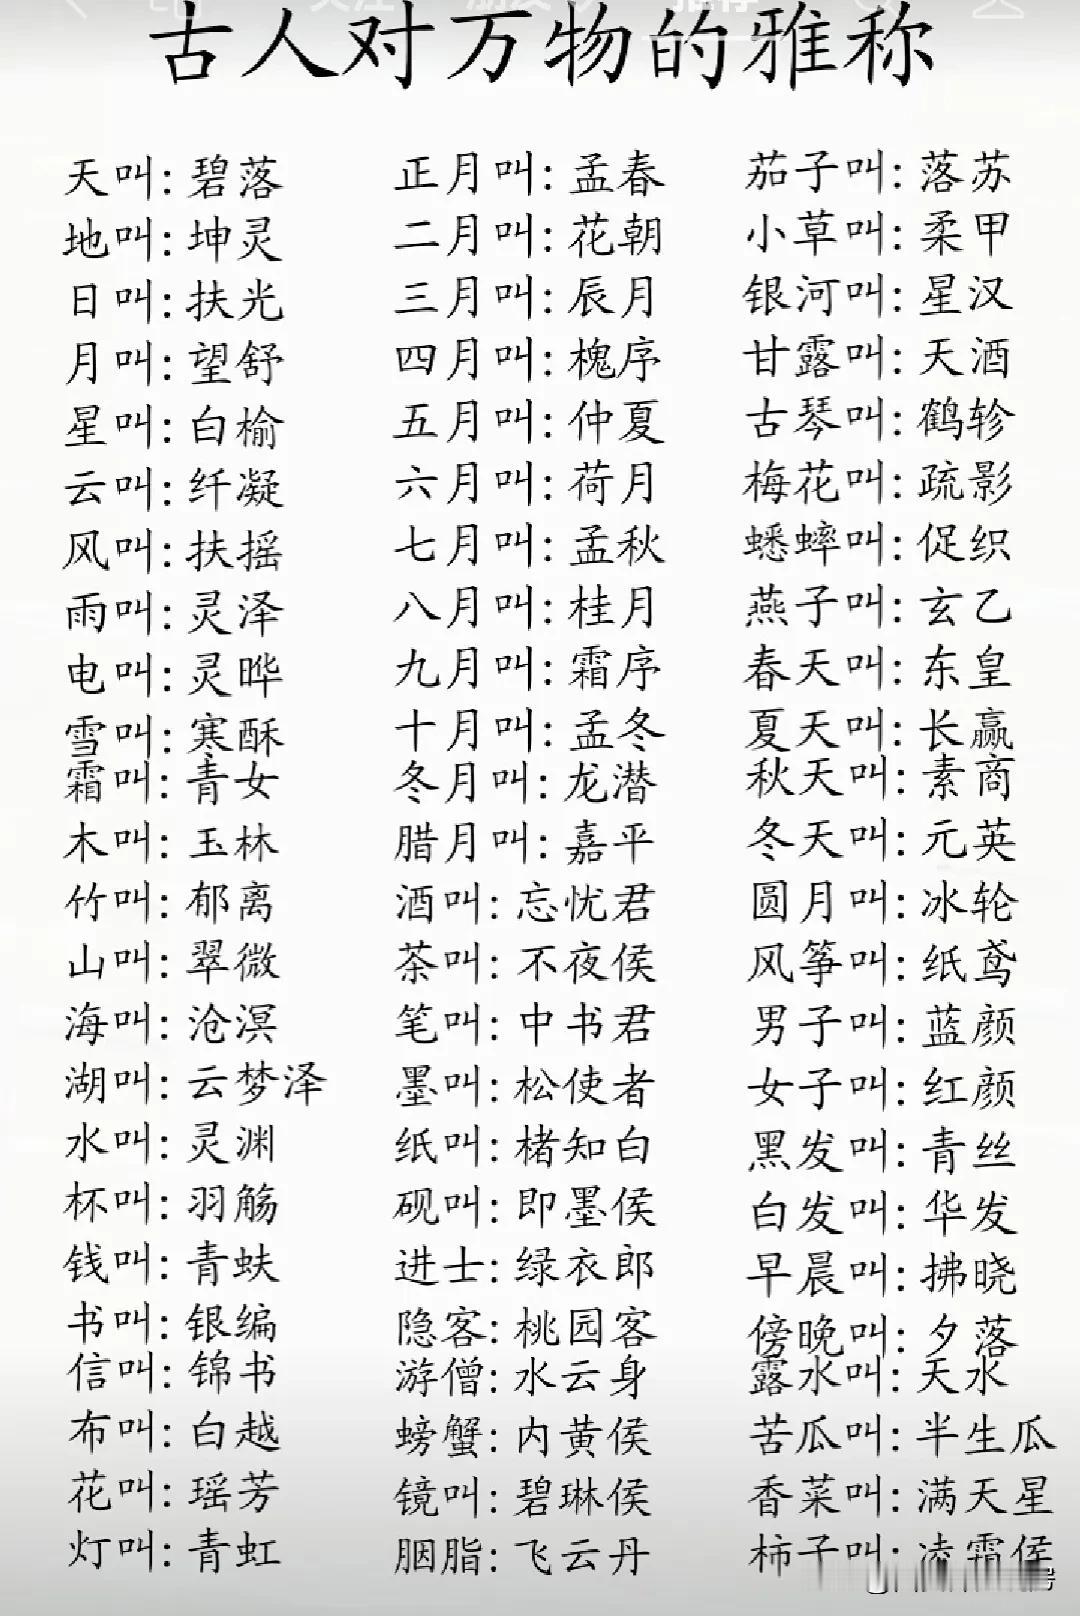 古人对万物的雅称
天叫:碧落 正月叫:孟春 茄子叫:落苏
地叫:坤灵 二月叫:花朝 小草叫:柔甲
日叫:扶光 三月叫:辰月 银河叫:星汉
月叫:望舒 四月叫:槐序 甘露叫:天酒
星叫:白榆 五月叫:仲夏 古琴叫:鹤轸
云叫:纤凝 六月叫:荷月 梅花叫:疏影
风叫:扶摇 七月叫:孟秋 蟋蟀叫:促织
雨叫:灵泽 八月叫:桂月 燕子叫:玄乙
电叫:灵晔 九月叫:霜序 春天叫:东皇
雪叫:寒酥 十月叫:孟冬 夏天叫:长赢
霜叫:青女 冬月叫:龙潜 秋天叫:素商
木叫:玉林 腊月叫:嘉平 冬天叫:元英
竹叫:郁离 酒叫:忘忧君 圆月叫:冰轮
山叫:翠微 茶叫:不夜侯 风筝叫:纸鸢
海叫:沧溟 笔叫:中书君 男子叫:蓝颜
湖叫:云梦泽 墨叫:松使者 女子叫:红颜
水叫:灵渊 纸叫:楮知白 黑发叫:青丝
杯叫:羽觞 砚叫:即墨侯 白发叫:华发
钱叫:青蚨 进士:绿衣郎 早晨叫:拂晓
书叫:银编 隐客:桃园客 傍晚叫:夕落
信叫:锦书 游僧:水云身 露水叫:天水
布叫:白越 螃蟹:内黄侯 苦瓜叫:半生瓜
花叫:瑶芳 镜叫:碧琳侯 香菜叫:满天星
灯叫:青虹 胭脂:飞云丹 柿子叫:凌霜侯